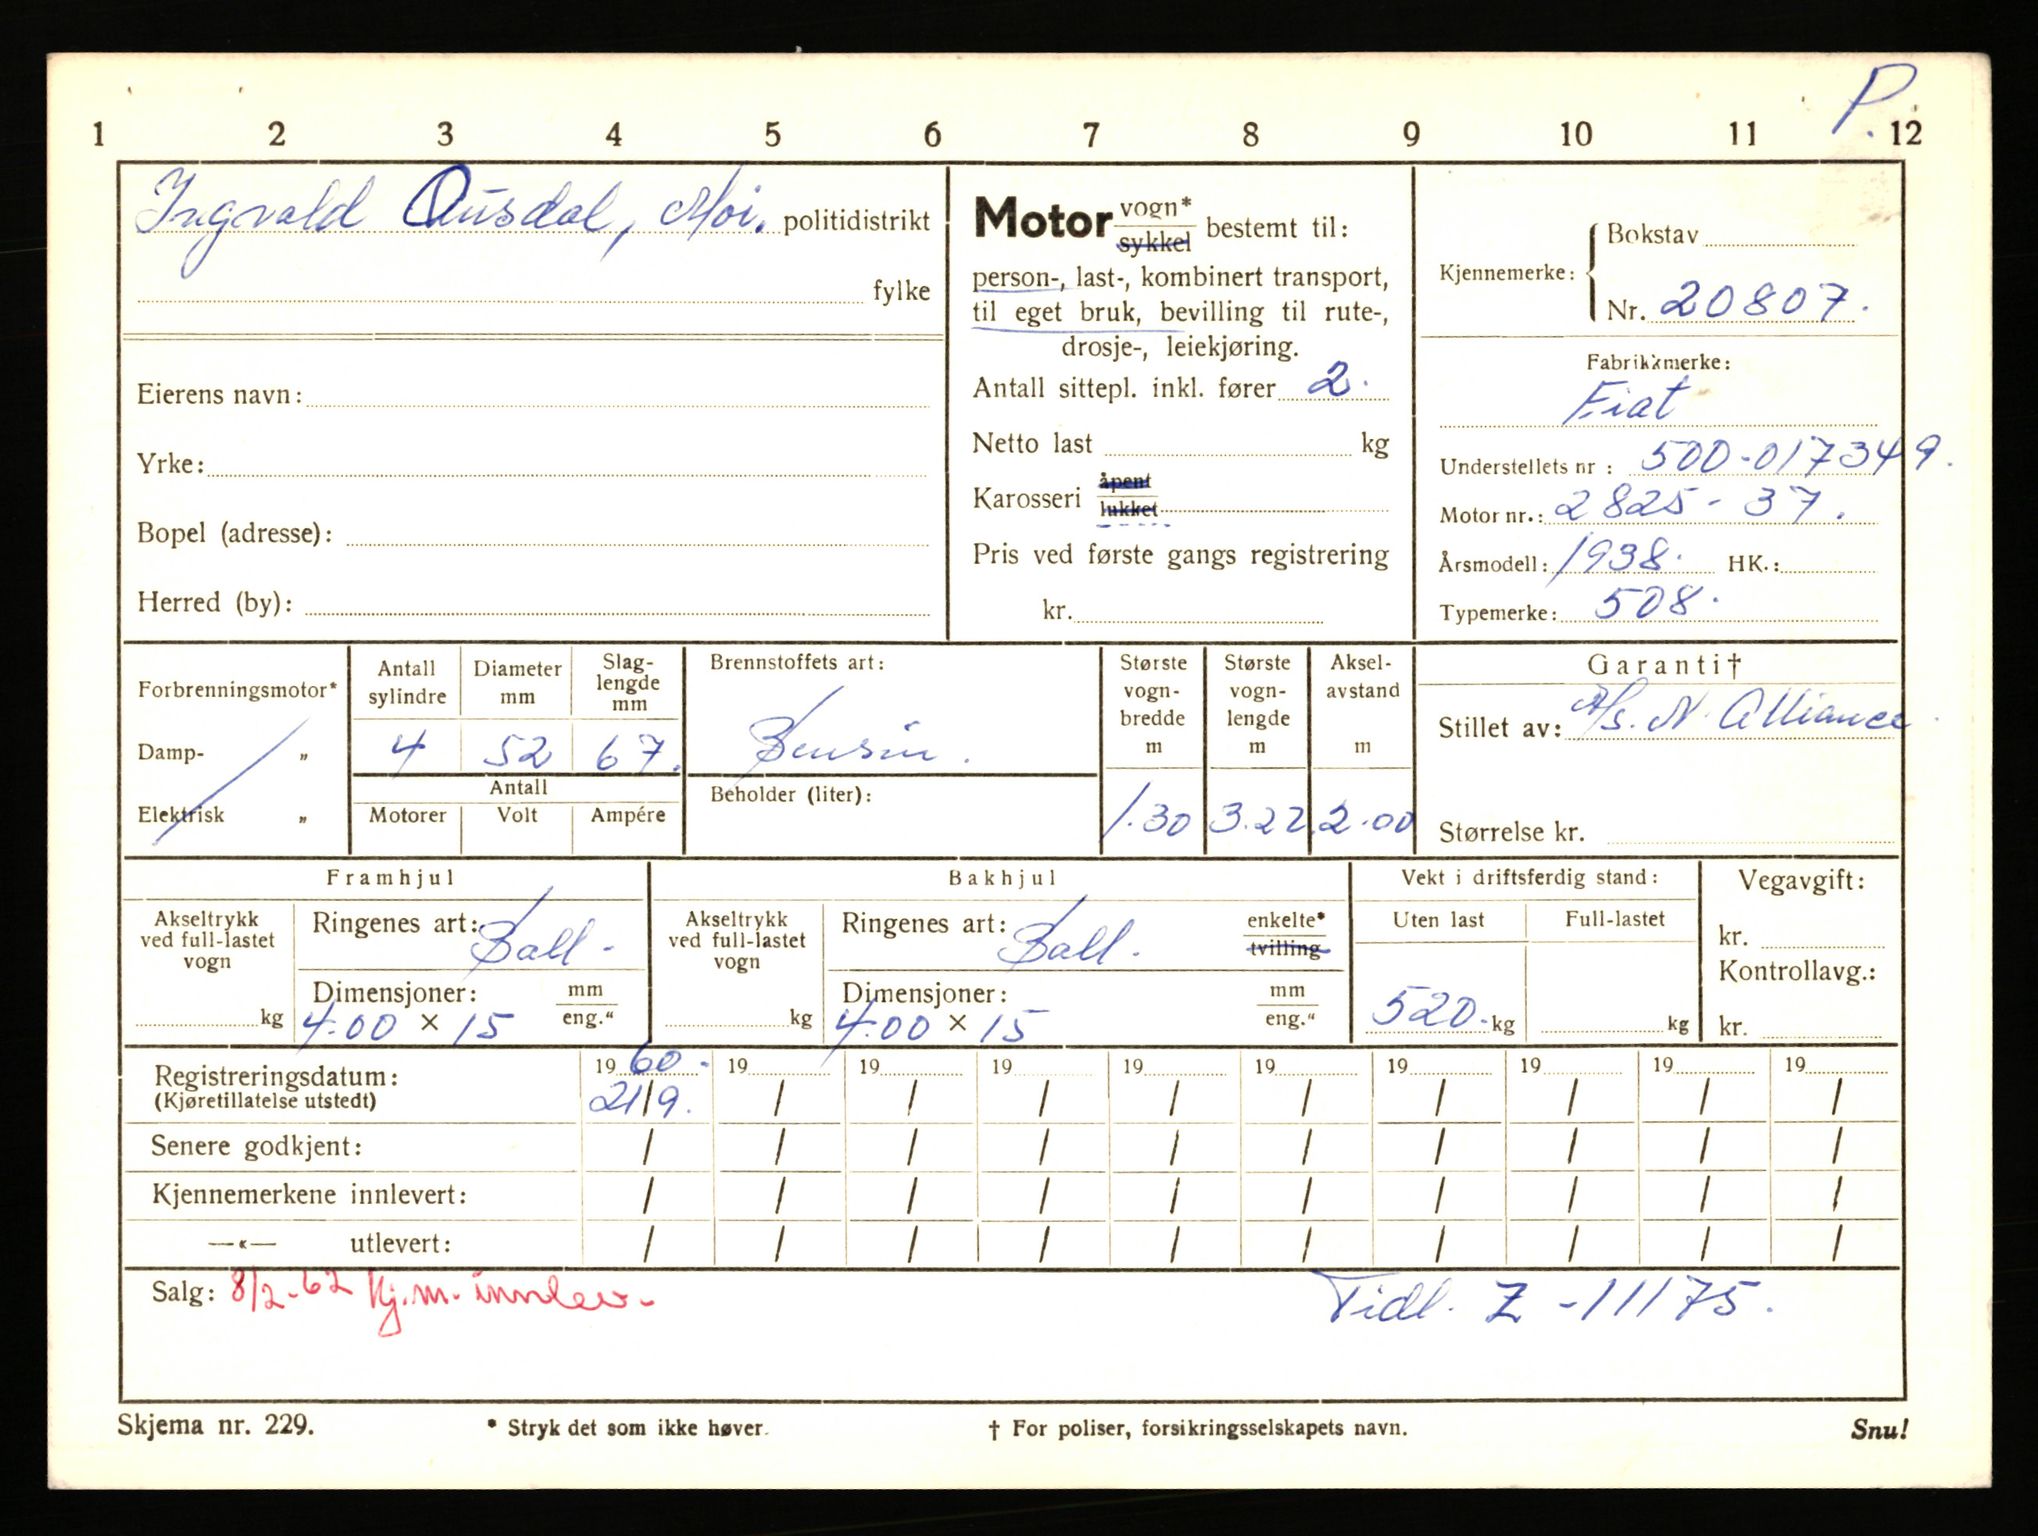 P.
1 2 3 4 5 6 7 8 9 10 11 12
Ingvald Ousdal, Moi. politidistrikt
fylke
Eierens navn:
Yrke:
Bopel (adresse):
Herred (by):
Motor vogn* sykkel bestemt til:
person-, last-, kombinert transport,
til eget bruk, bevilling til rute-,
drosje-, leiekjøring.
Antall sittepl. inkl. fører 2.
Netto last kg
Karosseri åpent lukket
Pris ved første gangs registrering
kr.
Kjennemerke: Bokstav
Nr. 20807.
Fabrikkmerke:
Fiat
Understellets nr : 500-017349.
Motor nr.: 2825-37.
Årsmodell: 1938. HK.:
Typemerke: 508.
Forbrenningsmotor*
Damp- „
Elektrisk „
Antall sylindre
Diameter mm
Slag-lengde mm
4 52 67.
Antall
Motorer Volt Ampére
Brennstoffets art:
Bensin.
Beholder (liter):
Største vogn-bredde m
Største vogn-lengde m
Aksel-avstand m
1.30 3.22 2.00
Garanti†
Stillet av: A/s. N. Alliance
Størrelse kr.
Framhjul
Akseltrykk ved full-lastet vogn
kg
Ringenes art: Ball.
Dimensjoner: mm eng.“
4.00 × 15
Bakhjul
Akseltrykk ved full-lastet vogn
kg
Ringenes art: Ball. enkelte* tvilling
Dimensjoner: mm eng.“
4.00 × 15
Vekt i driftsferdig stand:
Uten last Full-lastet
520. kg kg
Vegavgift:
kr.
Kontrollavg.:
kr.
Registreringsdatum: 19 60. 19 19 19 19 19 19 19 19 19
(Kjøretillatelse utstedt) 21/9. / / / / / / / / /
Senere godkjent: / / / / / / / / / /
Kjennemerkene innlevert: / / / / / / / / / /
—«— utlevert: / / / / / / / / / /
Salg: 8/2-62 Kj.m. innlev. Tidl. Z-11175.
Skjema nr. 229. * Stryk det som ikke høver. † For poliser, forsikringsselskapets navn. Snu!